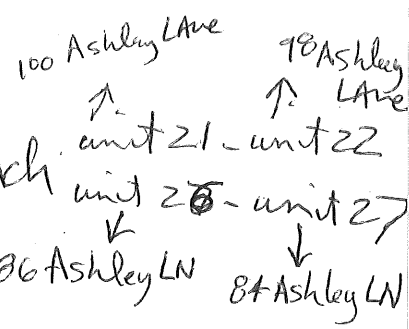 100 Ashley LAne
98 Ashley LAne
unit 21 - unit 22
unit 26 - unit 27
86 Ashley LN
84 Ashley LN